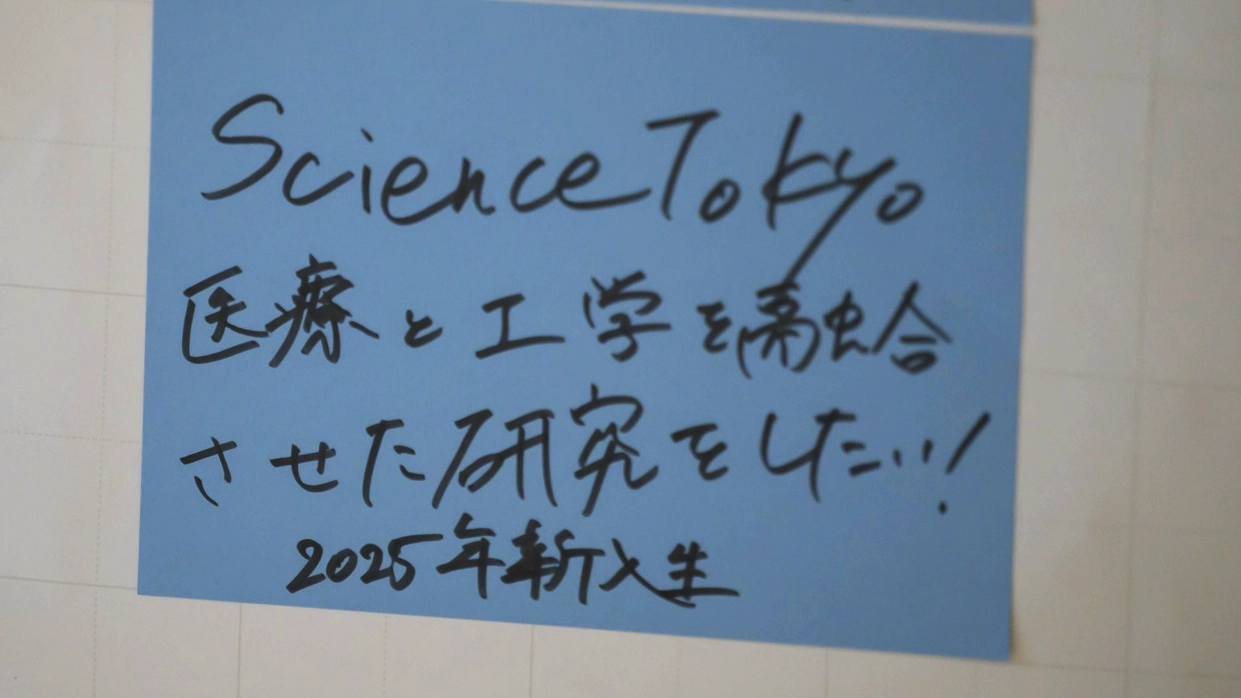 Science Tokyo
医療と工学を融合
させた研究をしたい!
2025年新入生